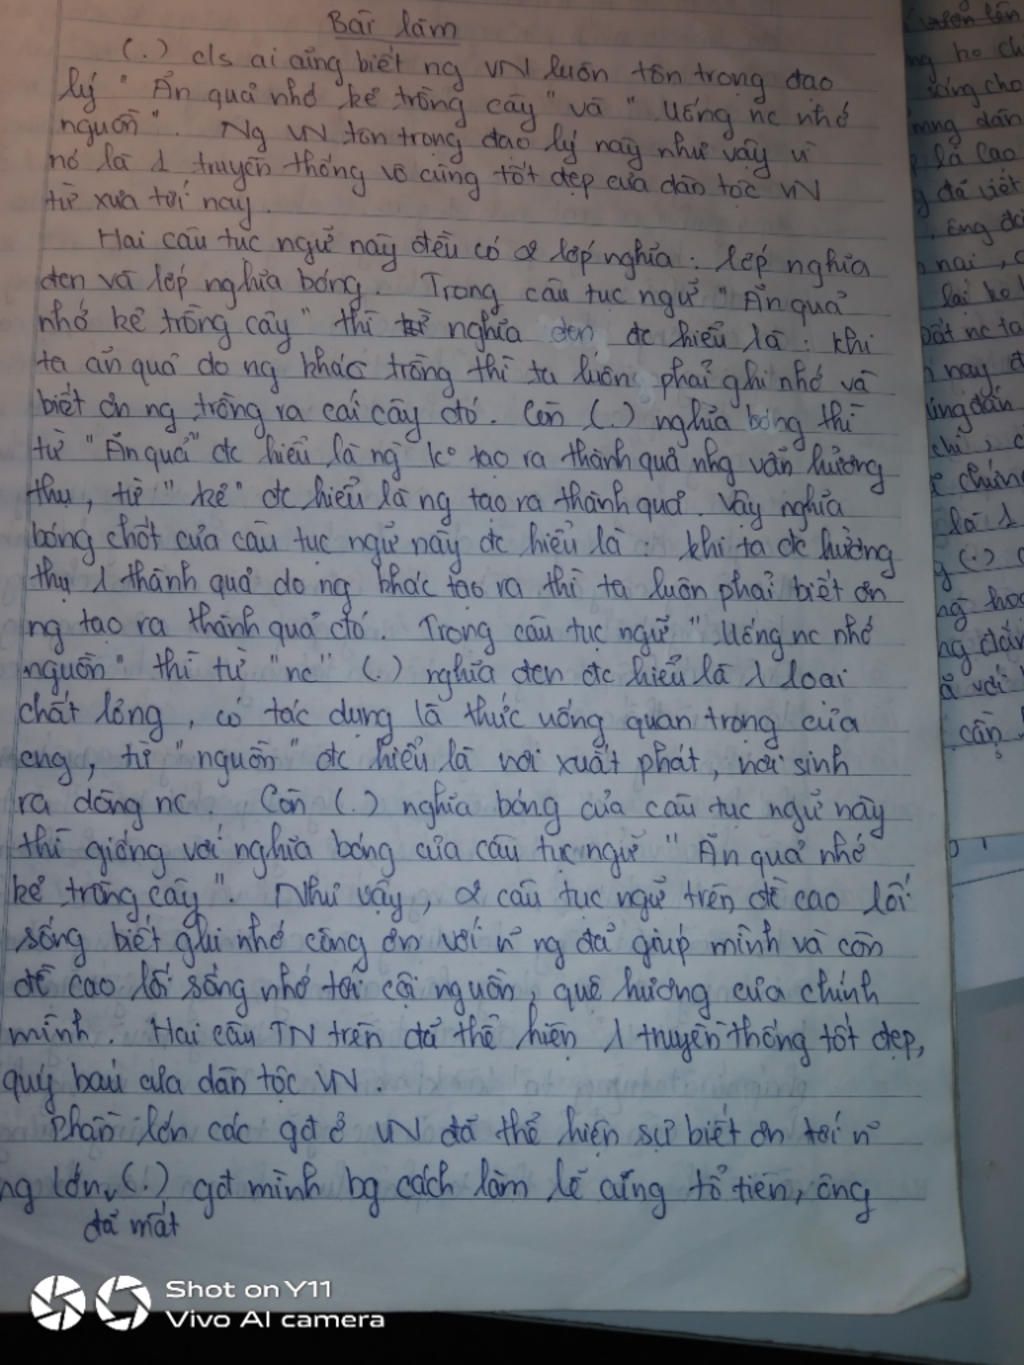 Bài làm
(.) c/s ai cũng biết ng VN luôn tôn trọng đạo
lý "Ăn quả nhớ kẻ trồng cây" và "Uống nc nhớ
nguồn". Ng VN tôn trọng đạo lý này như vậy vì
nó là 1 truyền thống vô cùng tốt đẹp của dân tộc VN
từ xưa tới nay.
Hai câu tục ngữ này đều có 2 lớp nghĩa: lớp nghĩa
đen và lớp nghĩa bóng. Trong câu tục ngữ "Ăn quả
nhớ kẻ trồng cây" thì nghĩa đen đc hiểu là: khi
ta ăn quả do ng khác trồng thì ta luôn phải ghi nhớ và
biết ơn ng trồng ra cái cây đó. Còn (.) nghĩa bóng thì
từ "Ăn quả" đc hiểu là ng ko tạo ra thành quả nhg vẫn hưởng
thụ, từ "kẻ" đc hiểu là ng tạo ra thành quả. Vậy nghĩa
bóng chốt của câu tục ngữ này đc hiểu là: khi ta đc hưởng
thụ 1 thành quả do ng khác tạo ra thì ta luôn phải biết ơn
ng tạo ra thành quả đó. Trong câu tục ngữ "Uống nc nhớ
nguồn" thì từ "nc" (.) nghĩa đen đc hiểu là 1 loại
chất lỏng, có tác dụng là thức uống quan trọng của
cng, từ "nguồn" đc hiểu là nơi xuất phát, nơi sinh
ra dòng nc. Còn (.) nghĩa bóng của câu tục ngữ này
thì giống với nghĩa bóng của câu tục ngữ "Ăn quả nhớ
kẻ trồng cây". Như vậy, 2 câu tục ngữ trên đề cao lối
sống biết ghi nhớ công ơn với n~ ng đã giúp mình và còn
đề cao lối sống nhớ tới cội nguồn, quê hương của chính
mình. Hai câu TN trên đã thể hiện 1 truyền thống tốt đẹp,
quý báu của dân tộc VN.
Phần lớn các gđ ở VN đã thể hiện sự biết ơn tới n~
ng lớn (.) gđ mình bg cách làm lễ cúng tổ tiên, ông
đã mất
Shot on Y11
Vivo AI camera